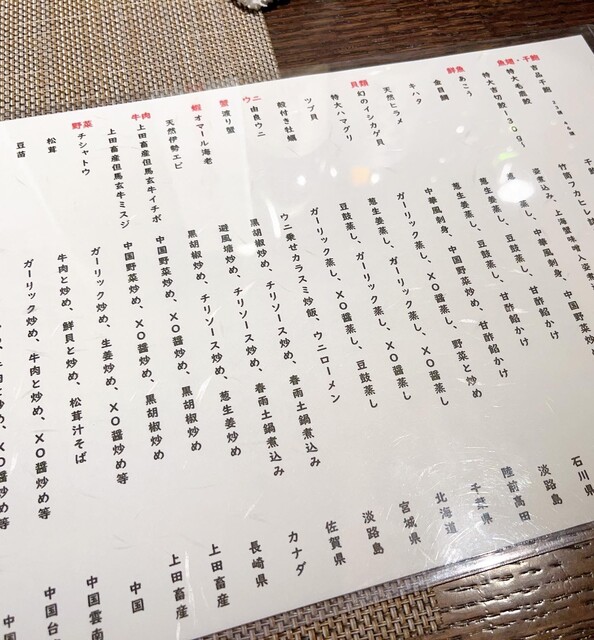 魚翅・干鮑
吉品干鮑
特大毛鹿鮫
特大吉切鮫
鮮魚
あこう
金目鯛
キハタ
天然ヒラメ
貝類
幻のイシカゲ貝
特大ハマグリ
ツブ貝
殻付き牡蠣
ウニ
由良ウニ
蟹
渡り蟹
蝦
オマール海老
天然伊勢エビ
牛肉
上田畜産但馬玄牛イチボ
上田畜産但馬玄牛ミスジ
野菜
チシャトウ
松茸
豆苗
干鮑
竹岡フカヒレ
姿煮込み、上海蟹味噌入姿煮
蒸し、中華風刺身、中国野菜炒め
蒸し、豆鼓蒸し、甘酢餡かけ
葱生姜蒸し、豆鼓蒸し、甘酢餡かけ
葱生姜蒸し、中国野菜炒め、甘酢餡かけ
中華風刺身、中国野菜炒め、野菜と炒め
ガーリック蒸し、XO醤蒸し
葱生姜蒸し、ガーリック蒸し、XO醤蒸し
豆鼓蒸し、ガーリック蒸し、XO醤蒸し
ガーリック蒸し、XO醤蒸し、豆鼓蒸し
ウニ乗せカラスミ炒飯、ウニローメン
黒胡椒炒め、チリソース炒め、春雨土鍋煮込み
避風塘炒め、チリソース炒め、春雨土鍋煮込み
黒胡椒炒め、チリソース炒め、葱生姜炒め
中国野菜炒め、XO醤炒め、黒胡椒炒め
中国野菜炒め、XO醤炒め、黒胡椒炒め
ガーリック炒め、生姜炒め、XO醤炒め等
牛肉と炒め、鮮貝と炒め、松茸汁そば
ガーリック炒め、牛肉と炒め、XO醤炒め等
牛肉と炒め、XO醤炒め等
石川県
淡路島
陸前高田
千葉県
北海道
宮城県
淡路島
佐賀県
カナダ
長崎県
上田畜産
上田畜産
中国
中国雲南
中国台
中国